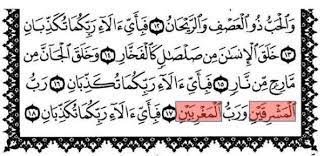 وَٱلْحَبُّ ذُو ٱلْعَصْفِ وَٱلرَّيْحَانُ ١٢ فَبِأَىِّ ءَالَآءِ رَبِّكُمَا تُكَذِّبَانِ
١٣ خَلَقَ ٱلْإِنسَٰنَ مِن صَلْصَٰلٍ كَٱلْفَخَّارِ ١٤ وَخَلَقَ ٱلْجَآنَّ مِن
مَّارِجٍ مِّن نَّارٍ ١٥ فَبِأَىِّ ءَالَآءِ رَبِّكُمَا تُكَذِّبَانِ ١٦ رَبُّ
ٱلْمَشْرِقَيْنِ وَرَبُّ ٱلْمَغْرِبَيْنِ ١٧ فَبِأَىِّ ءَالَآءِ رَبِّكُمَا تُكَذِّبَانِ ١٨